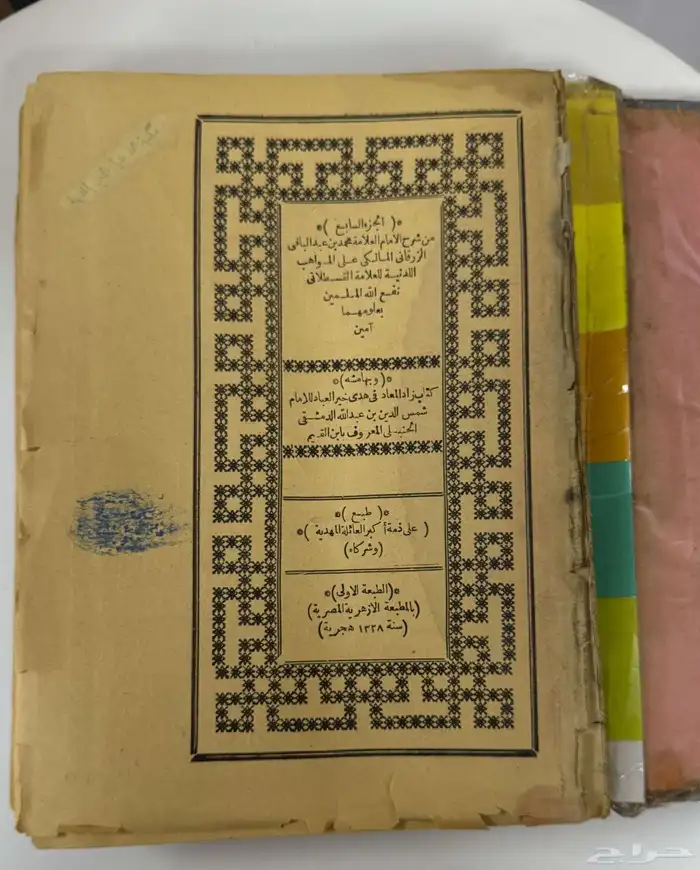 *( الجزء السابع )*
من شرح الامام العلامة محمد بن عبد الباقى
الزرقانى المالكى على المواهب
اللدنية للعلامة القسطلانى
نفع الله المسلمين
بعلومهما
آمين
*( وبهامشه )*
كتاب زاد المعاد فى هدى خير العباد للامام
شمس الدين بن عبد الله الدمشقى
الحنبلى المعروف بابن القيم
*( طبع )*
( على ذمة أكبر العائلة المهدية )
(وشركاه)
*(الطبعة الاولى)*
(بالمطبعة الازهرية المصرية)
(سنة ١٣٢٨ هجرية)
حراج